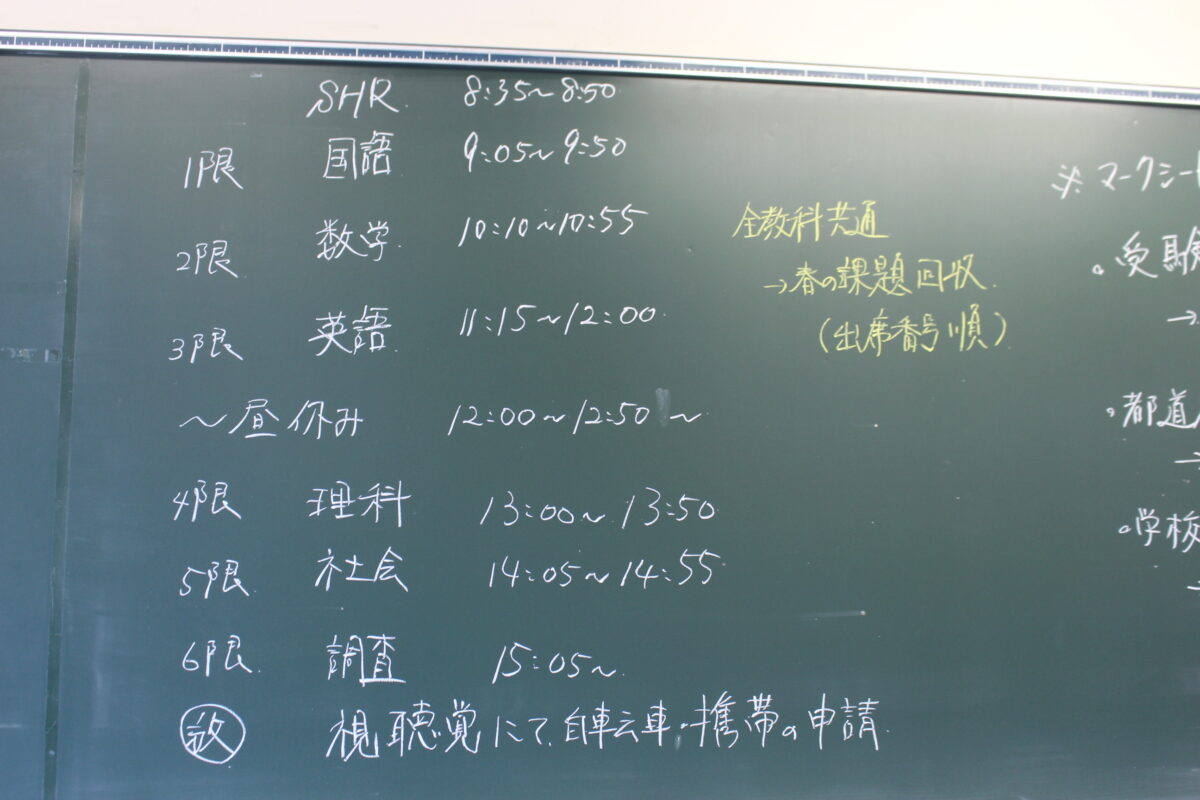 SHR. 8:35~8:50
1限 国語 9:05~9:50
2限 数学. 10:10~10:55
3限 英語. 11:15~12:00
～昼休み 12:00~12:50 ～
4限 理科 13:00~13:50
5限 社会 14:05~14:55
6限. 調査 15:05~
放 視聴覚にて、自転車・携帯の申請
全教科共通
→春の課題回収.
(出席番号順)
※マークシート
。受験
→
。都道
→
。学校